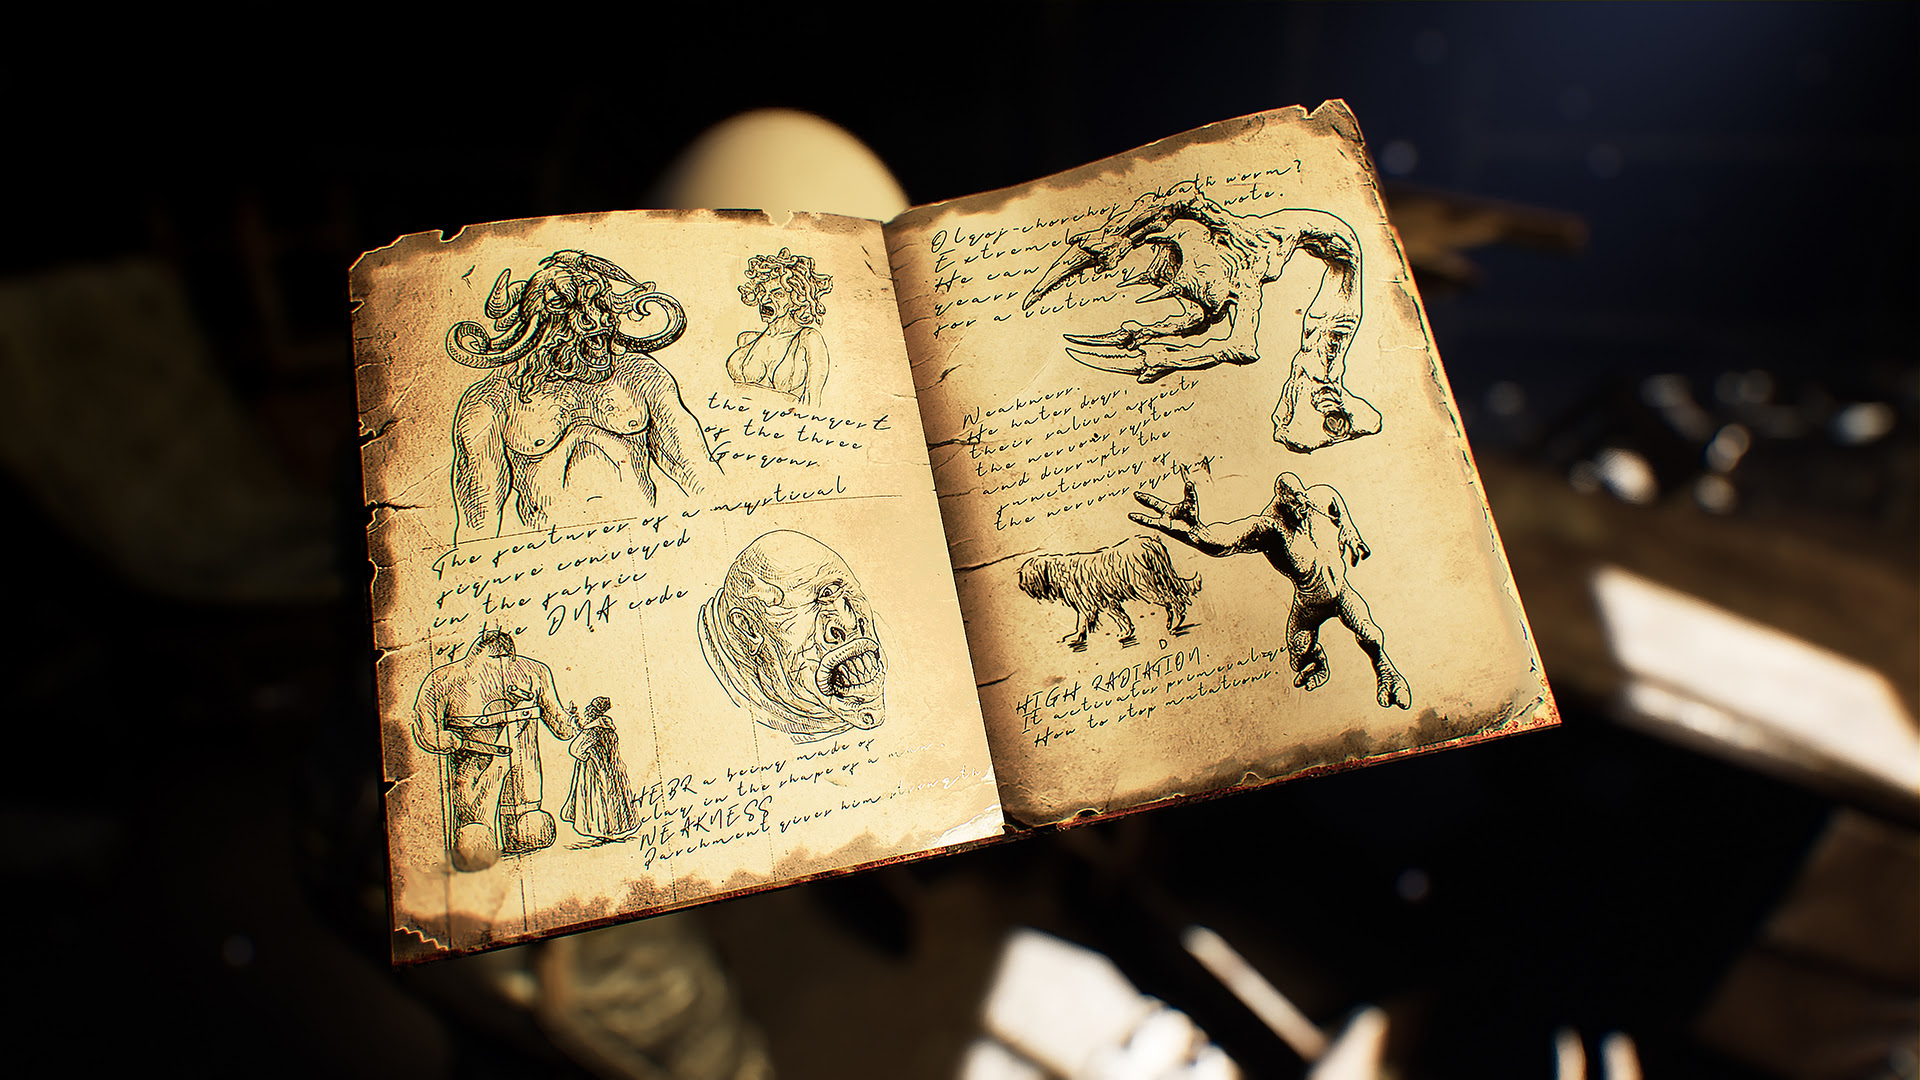 the youngest
of the three
Gorgons.
The features of a mystical
figure conveyed
in the fabric
of the DNA code
HEBR a being made of
clay in the shape of a man.
WEAKNESS
Parchment gives him strength
Olgoi-chorchoi, death worm?
Extremely note.
He can
years waiting
for a victim.
Weakness.
He hates dogs,
their saliva affects
the nervous system
and disrupts the
functioning of
the nervous system.
D
HIGH RADIATION.
It activates primeval
How to stop mutations.